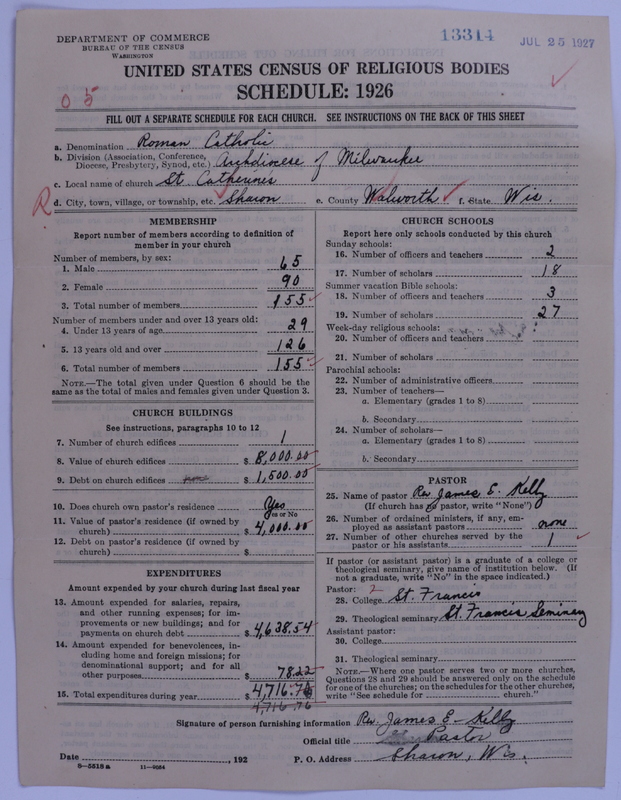 DEPARTMENT OF COMMERCE
BUREAU OF THE CENSUS
WASHINGTON
13314
JUL 25 1927
UNITED STATES CENSUS OF RELIGIOUS BODIES
SCHEDULE: 1926
0 5
FILL OUT A SEPARATE SCHEDULE FOR EACH CHURCH. SEE INSTRUCTIONS ON THE BACK OF THIS SHEET
a. Denomination Roman Catholic
b. Division (Association, Conference, Diocese, Presbytery, Synod, etc.) Archdiocese of Milwaukee
c. Local name of church St Catherines
R
d. City, town, village, or township, etc. Sharon e. County Walworth f. State Wis.
MEMBERSHIP
Report number of members according to definition of
member in your church
Number of members, by sex:
1. Male 65
2. Female 90
3. Total number of members 155
Number of members under and over 13 years old:
4. Under 13 years of age 29
5. 13 years old and over 126
6. Total number of members 155
NOTE.—The total given under Question 6 should be
same as the total of males and females given under Question 3.
CHURCH BUILDINGS
See instructions, paragraphs 10 to 12
7. Number of church edifices 1
8. Value of church edifices $ 8,000.00
9. Debt on church edifices $ 1,500.00
10. Does church own pastor's residence Yes
Yes or No
11. Value of pastor's residence (if owned by
church) $ 4,000.00
12. Debt on pastor's residence (if owned by
church) $
EXPENDITURES
Amount expended by your church during last fiscal year
13. Amount expended for salaries, repairs,
and other running expenses; for im-
provements or new buildings; and for
payments on church debt $ 4,638.54
14. Amount expended for benevolences, in-
cluding home and foreign missions; for
denominational support; and for all
other purposes $ 78.22
15. Total expenditures during year $ 4,716.76
4,716.76
CHURCH SCHOOLS
Report here only schools conducted by this church
Sunday schools:
16. Number of officers and teachers 2
17. Number of scholars 18
Summer vacation Bible schools:
18. Number of officers and teachers 3
19. Number of scholars 27
Week-day religious schools:
20. Number of officers and teachers
21. Number of scholars
Parochial schools:
22. Number of administrative officers
23. Number of teachers—
a. Elementary (grades 1 to 8)
b. Secondary
24. Number of scholars—
a. Elementary (grades 1 to 8)
b. Secondary
PASTOR
25. Name of pastor Rev James E. Kelly
(If church has no pastor, write "None")
26. Number of ordained ministers, if any, em-
ployed as assistant pastors none
27. Number of other churches served by the
pastor or his assistants 1
If pastor (or assistant pastor) is a graduate of a college or
theological seminary, give name of institution below. (If
not a graduate, write "No" in the space indicated.)
Pastor: 2
28. College St. Francis
29. Theological seminary St. Francis Seminary
Assistant pastor:
30. College
31. Theological seminary
NOTE.—Where one pastor serves two or more churches,
Questions 28 and 29 should be answered only on the schedule
for one of the churches; on the schedules for the other churches,
write "See schedule for church."
Signature of person furnishing information Rev. James E. Kelly
Official title Pastor
Date , 192 P. O. Address Sharon, Wis.
8—5518 a 11—9054